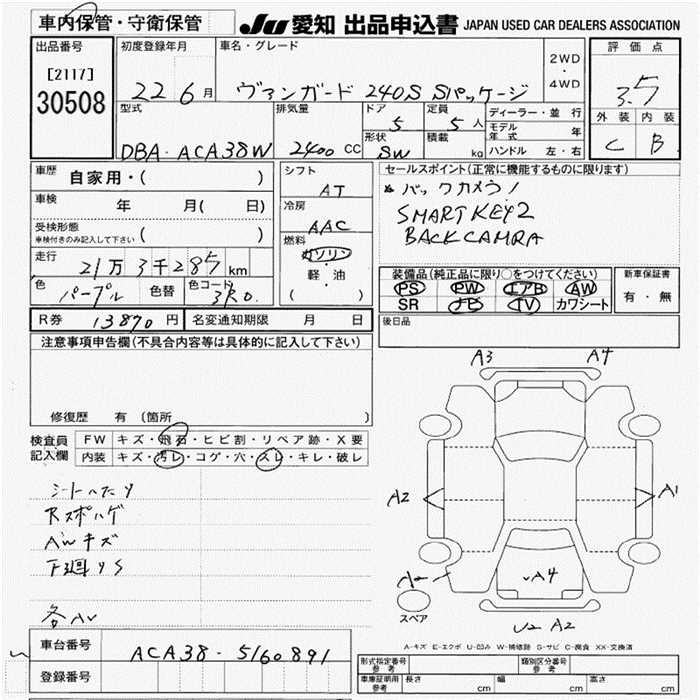 車内保管・守衛保管
JU 愛知 出品申込書 JAPAN USED CAR DEALERS ASSOCIATION
出品番号
[2117]
30508
初度登録年月
22 6月
車名・グレード
ヴァンガード 240S Sパッケージ
2WD
・
4WD
評価点
3.5
外装 内装
C B
型式
DBA-ACA38W
排気量
2400 CC
ドア
5
形状
SW
定員
5 人
積載
kg
ディーラー・並行
モデル年式 年
ハンドル 左・右
車歴 自家用・( )
車検 年 月( 日)
受検形態
車検付きのみ記入して下さい ( )
走行 21万3千285 km
色 パープル 色替 色コード 3R0.
シフト
AT
冷房
AAC
燃料
ガソリン
・
軽・油
( )
セールスポイント(正常に機能するものに限ります)
バックカメラ /
SMART KEY2
BACK CAMRA
装備品(純正品に限り○をつけてください)
PS PW エアB AW
SR ナビ TV カワシート
新車保証書
有・無
R券 13870 円 名変通知期限 月 日
後日品
注意事項申告欄(不具合内容等は具体的に記入して下さい)
修復歴 有 (箇所 )
検査員記入欄
FW キズ・飛石・ヒビ割・リペア跡・X要
内装 キズ・汚レ・コゲ・穴・スレ・キレ・破レ
シートへたり
Rスポハゲ
AWキズ
下廻りS
各AU
A3 A4
A2 A1
A
A4
スペア
U2 A2
A-キズ E-エクボ U-凹み W-補修跡 S-サビ C-腐食 XX-交換済
車台番号 ACA38-5160891
登録番号
形式指定番号 参考
類別区分番号 参考
車庫証明用 参考 長さ cm 幅 cm 高さ cm